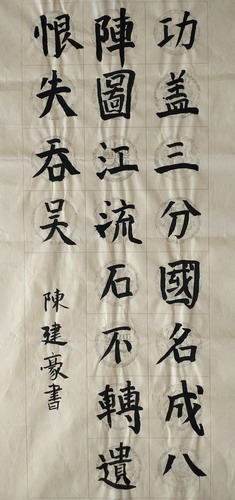 功盖三分國名成八
陣圖江流石不轉遺
恨失吞吴
陳建豪書